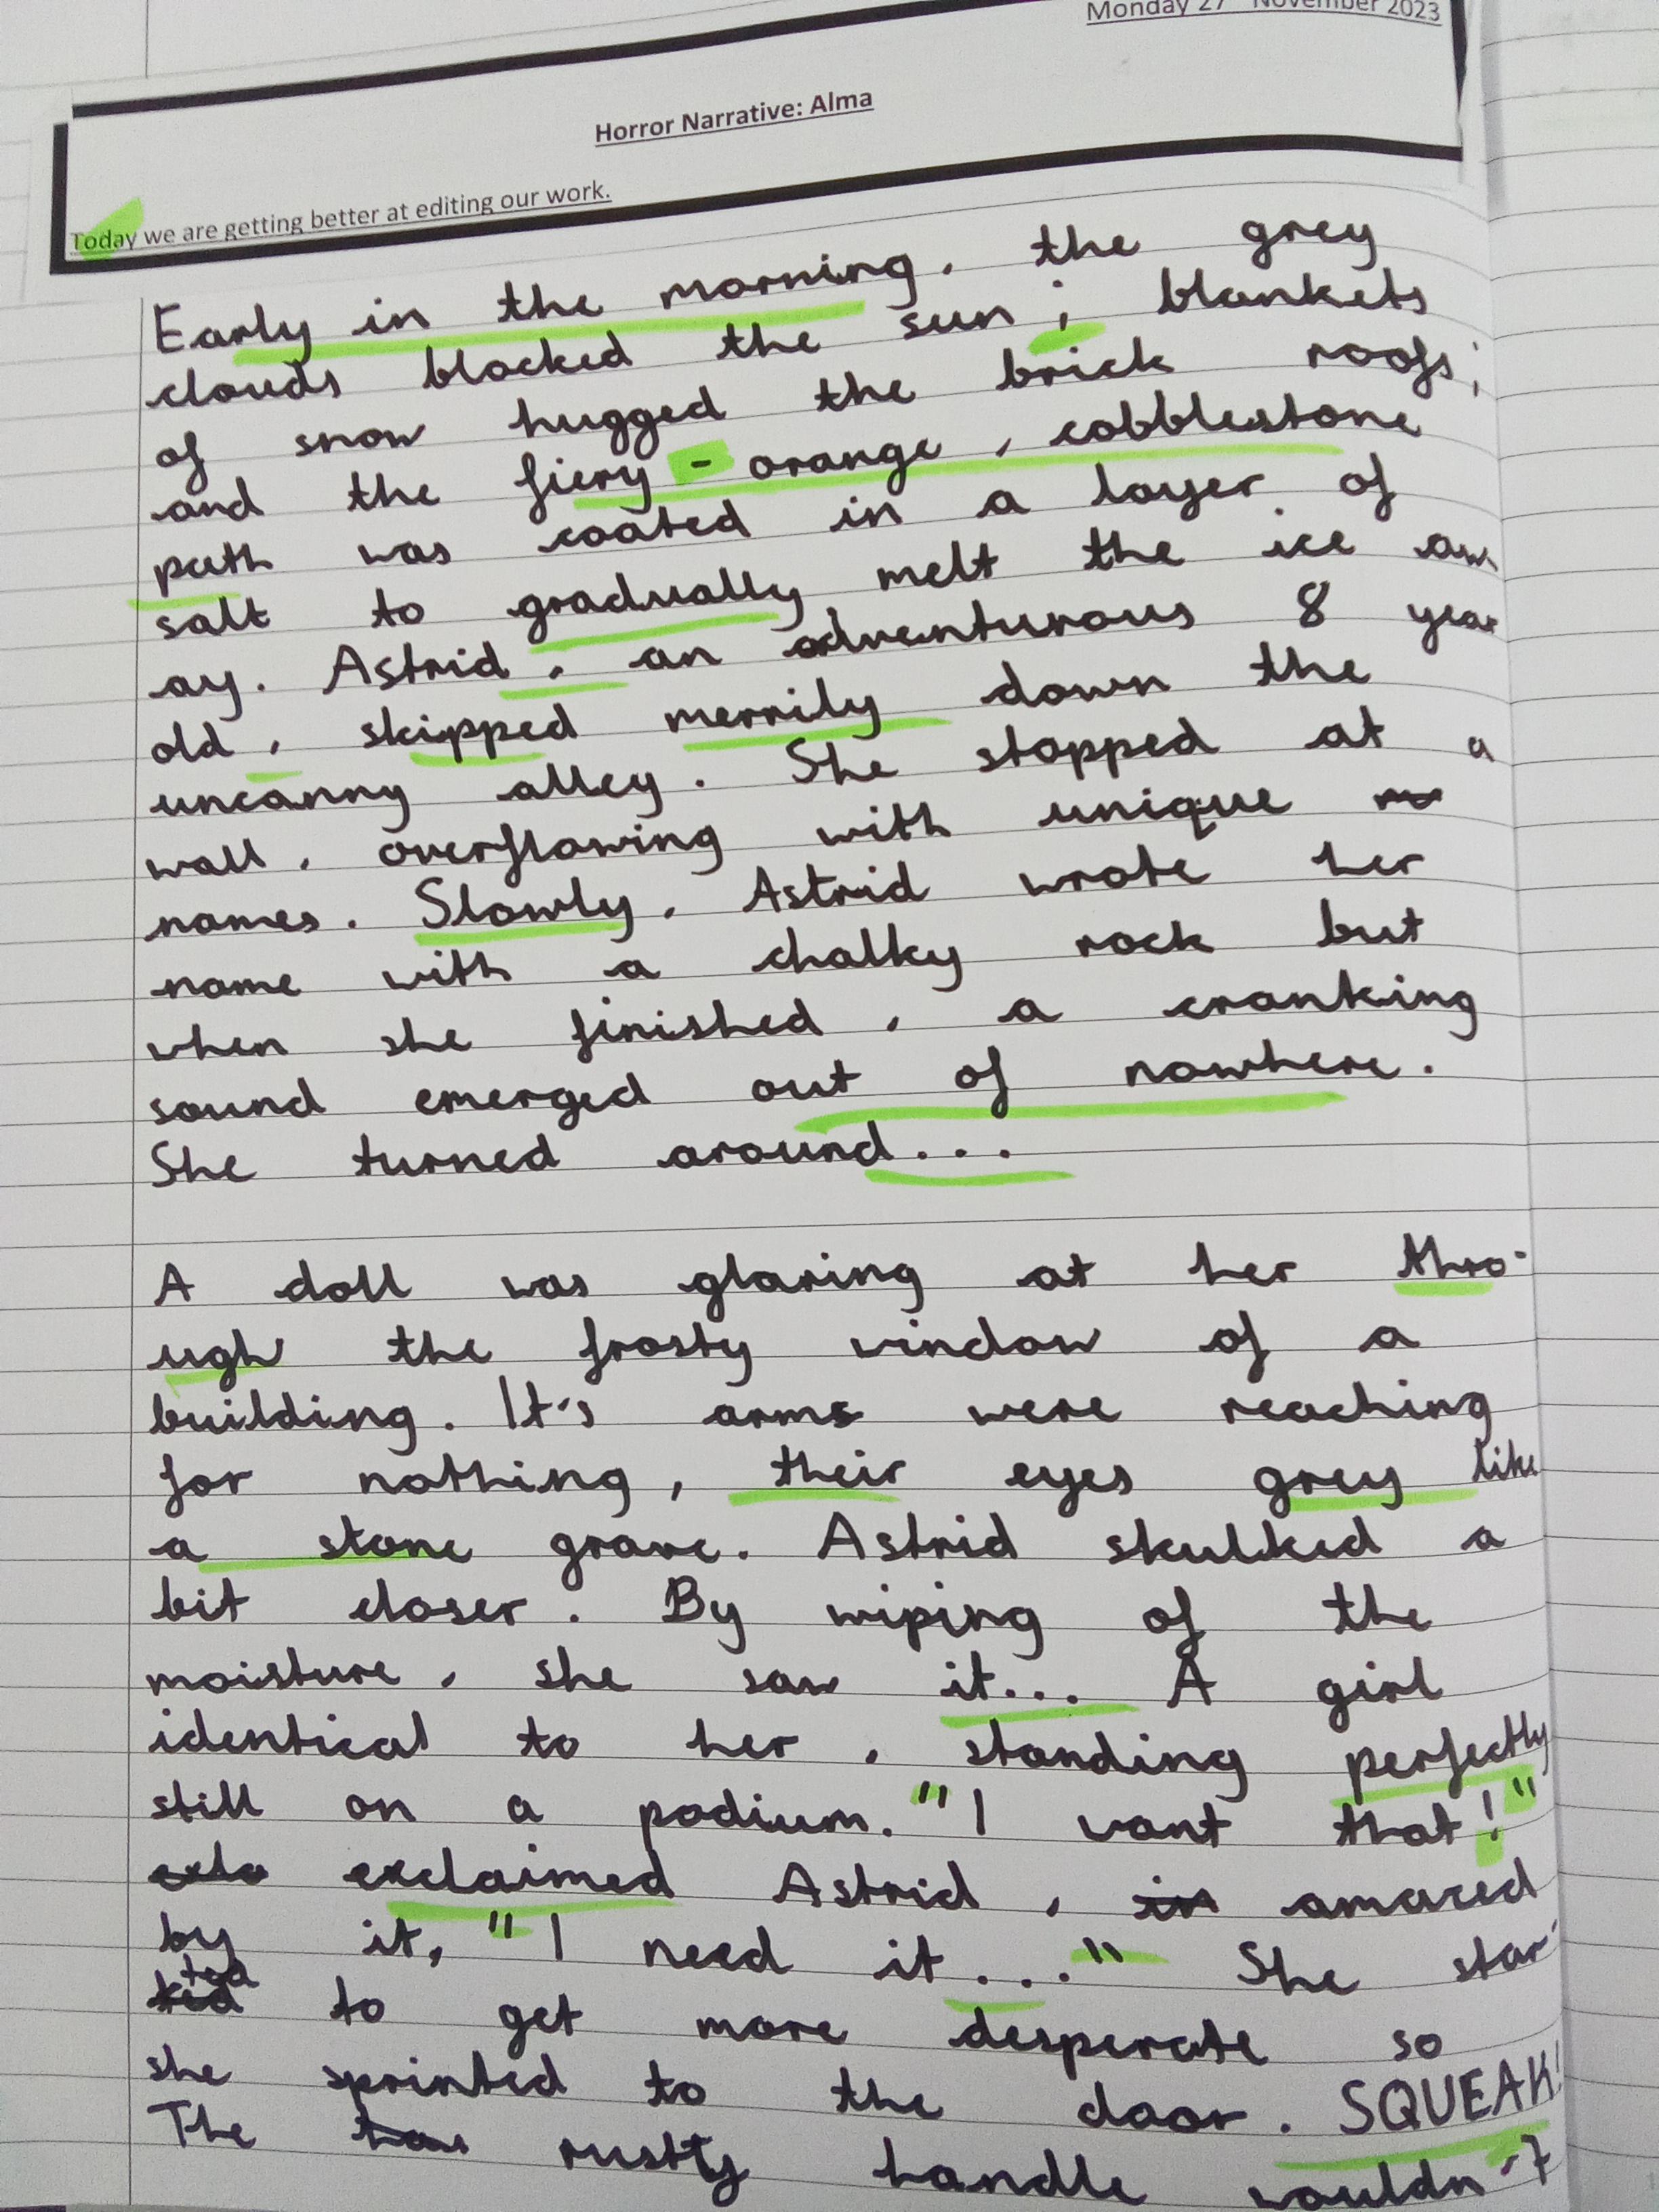 Monday 27 November 2023
Horror Narrative: Alma
Today we are getting better at editing our work.
Early in the morning, the grey
clouds blocked the sun; blankets
of snow hugged the brick roofs;
and the fiery-orange, cobblestone
path was coated in a layer of
salt to gradually melt the ice aw
ay. Astrid, an adventurous 8 year
old, skipped merrily down the
uncanny alley. She stopped at a
wall, overflowing with unique
names. Slowly, Astrid wrote her
name with a chalky rock but
when she finished, a cranking
sound emerged out of nowhere.
She turned around...
A doll was glaring at her thro-
ugh the frosty window of a
building. It's arms were reaching
for nothing, their eyes grey like
a stone grave. Astrid skulked a
bit closer. By wiping of the
moisture, she saw it... A girl
identical to her, standing perfectly
still on a podium. "I want that!"
exclaimed Astrid, amazed
by it, "I need it..." She star-
ted to get more desperate so
she sprinted to the door. SQUEAK!
The rusty handle wouldn't